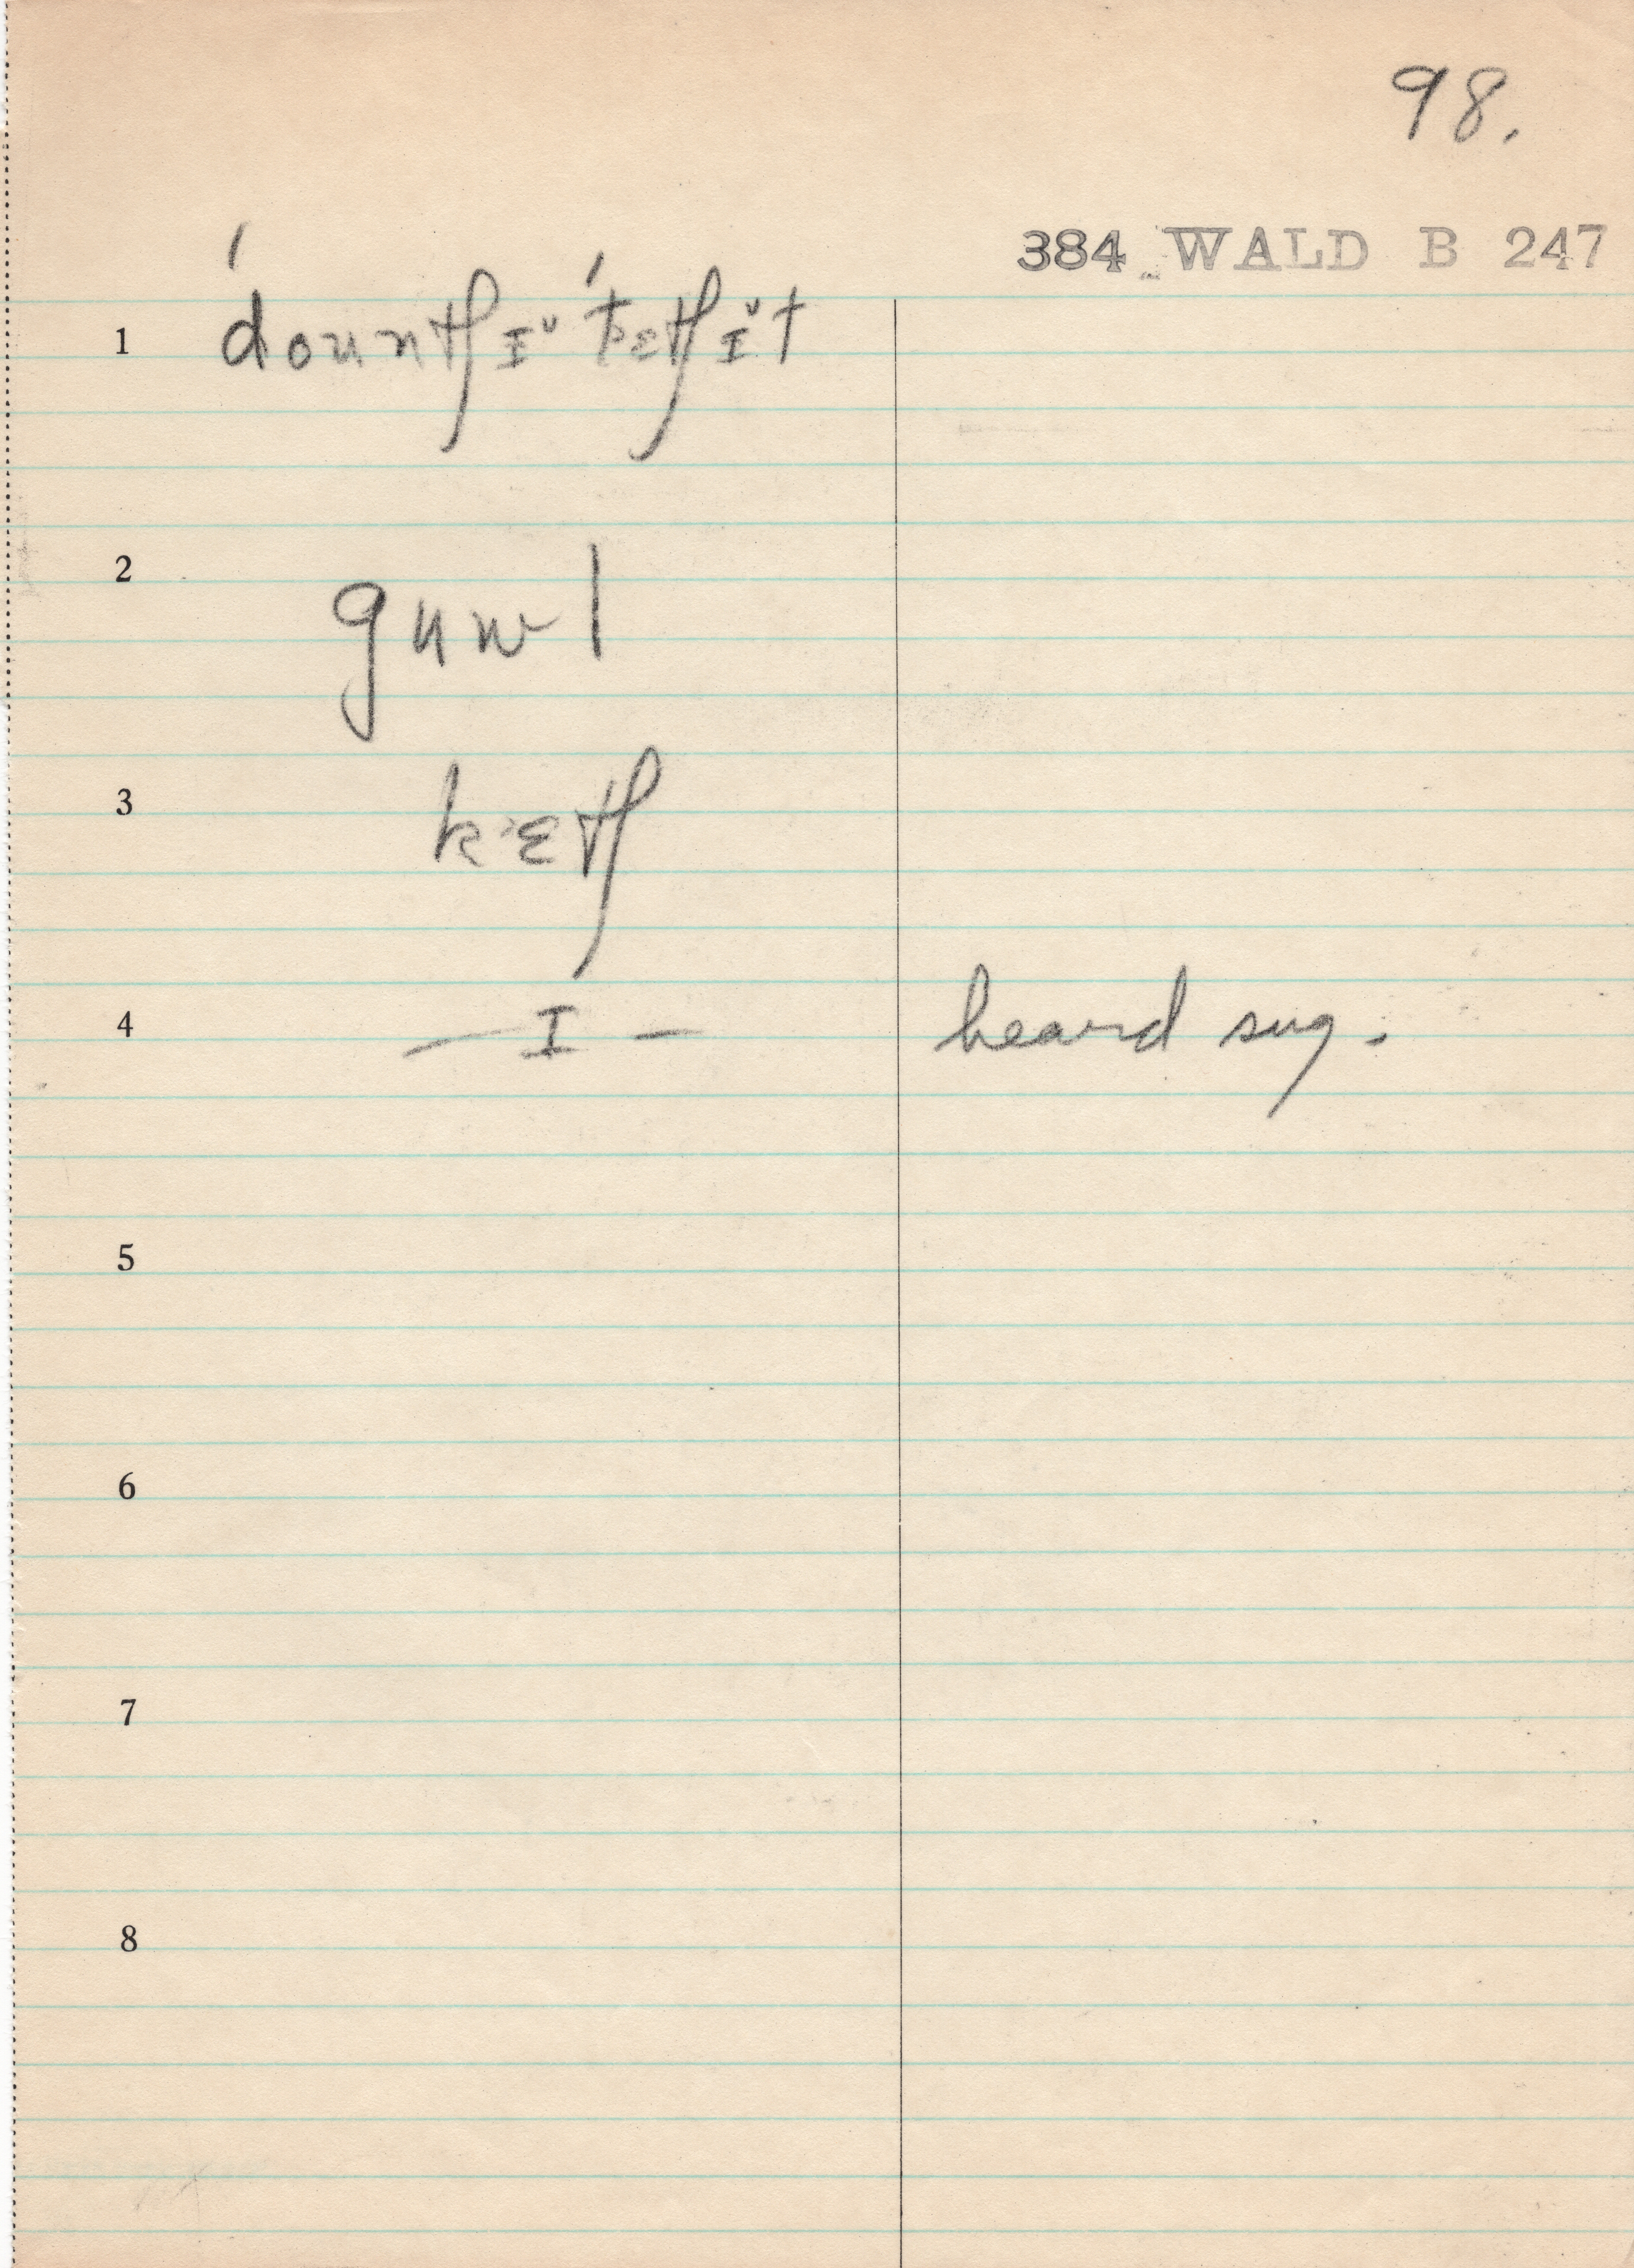 98.
384 WALD B 247
1 ˈdountʃɪˇˈtɛtʃɪˇt
2 guwl
3 kɛtʃ
4 — ɪ — heard sug.
5
6
7
8